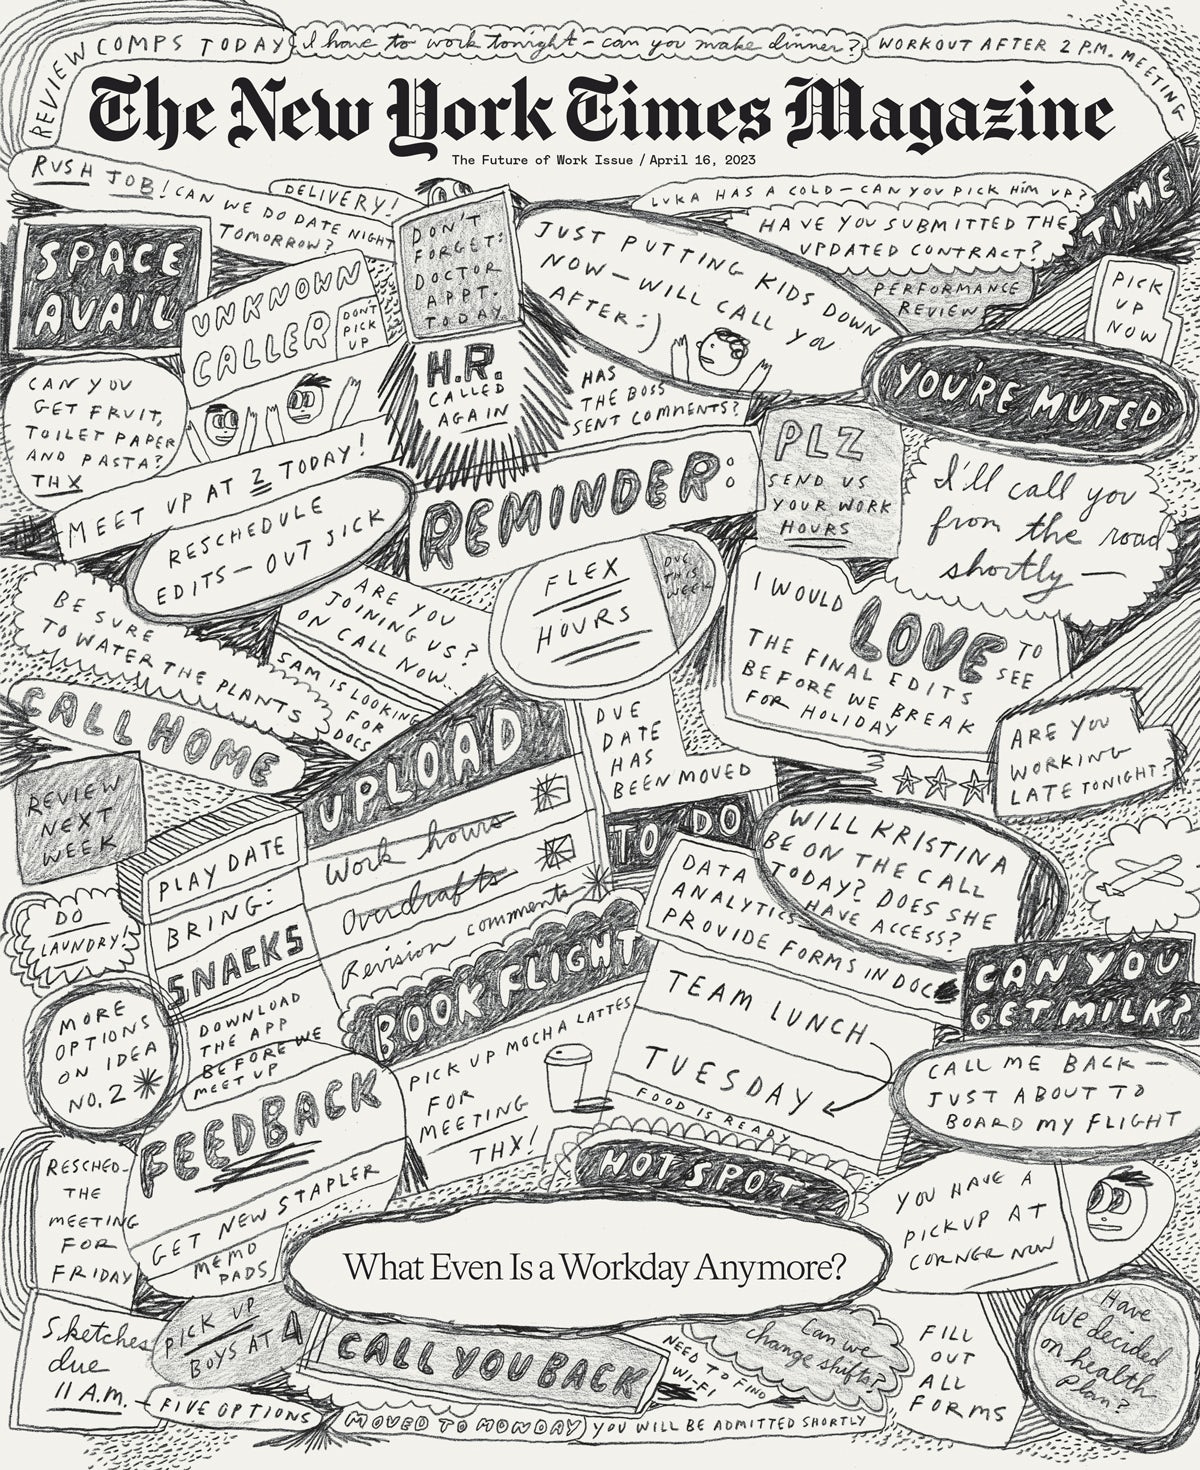 REVIEW COMPS TODAY
I have to work tonight – can you make dinner?
WORKOUT AFTER 2 P.M. MEETING
The New York Times Magazine
The Future of Work Issue / April 16, 2023
RUSH JOB! CAN WE DO DATE NIGHT
TOMORROW?
DELIVERY!
DON'T
FORGET:
DOCTOR
APPT.
TODAY
LUKA HAS A COLD – CAN YOU PICK HIM UP?
HAVE YOU SUBMITTED THE
UPDATED CONTRACT?
TIME
SPACE
AVAIL
UNKNOWN
CALLER
DON'T
PICK
UP
JUST PUTTING KIDS DOWN
NOW – WILL CALL YOU
AFTER :)
PERFORMANCE
REVIEW
PICK
UP
NOW
H.R.
CALLED
AGAIN
HAS
THE BOSS
SENT COMMENTS?
YOU'RE MUTED
CAN YOU
GET FRUIT,
TOILET PAPER
AND PASTA?
THX
MEET UP AT 2 TODAY!
RESCHEDULE
EDITS – OUT SICK
REMINDER:
PLZ
SEND US
YOUR WORK
HOURS
I'll call you
from the road
shortly —
FLEX
HOURS
DUE
THIS
WEEK
I WOULD LOVE TO
SEE
THE FINAL EDITS
BEFORE WE BREAK
FOR HOLIDAY
BE SURE
TO WATER THE PLANTS
ARE YOU
JOINING US?
ON CALL NOW..
SAM IS LOOKING
FOR
DOCS
CALL HOME
UPLOAD
Work hours
Overdrafts
Revision comments
DUE
DATE
HAS
BEEN MOVED
ARE YOU
WORKING
LATE TONIGHT?
REVIEW
NEXT
WEEK
PLAY DATE
BRING:
SNACKS
TO DO
DATA
ANALYTICS
PROVIDE FORMS IN DOC
WILL KRISTINA
BE ON THE CALL
TODAY? DOES SHE
HAVE ACCESS?
DO
LAUNDRY!
BOOK FLIGHT
CAN YOU
GET MILK?
TEAM LUNCH
TUESDAY
FOOD IS READY
MORE
OPTIONS
ON IDEA
NO. 2
DOWNLOAD
THE APP
BEFORE WE
MEET UP
PICK UP MOCHA LATTES
FOR
MEETING
THX!
CALL ME BACK —
JUST ABOUT TO
BOARD MY FLIGHT
FEEDBACK
GET NEW STAPLER
MEMO
PADS
RESCHED-
THE
MEETING
FOR
FRIDAY
HOT SPOT
YOU HAVE A
PICKUP AT
CORNER NOW
What Even Is a Workday Anymore?
Sketches
due
11 A.M.
PICK UP
BOYS AT 4
CALL YOU BACK
NEED TO FIND
WI-FI
Can we
change shifts?
FILL
OUT
ALL
FORMS
Have
We decided
on health
plan?
FIVE OPTIONS
MOVED TO MONDAY
YOU WILL BE ADMITTED SHORTLY